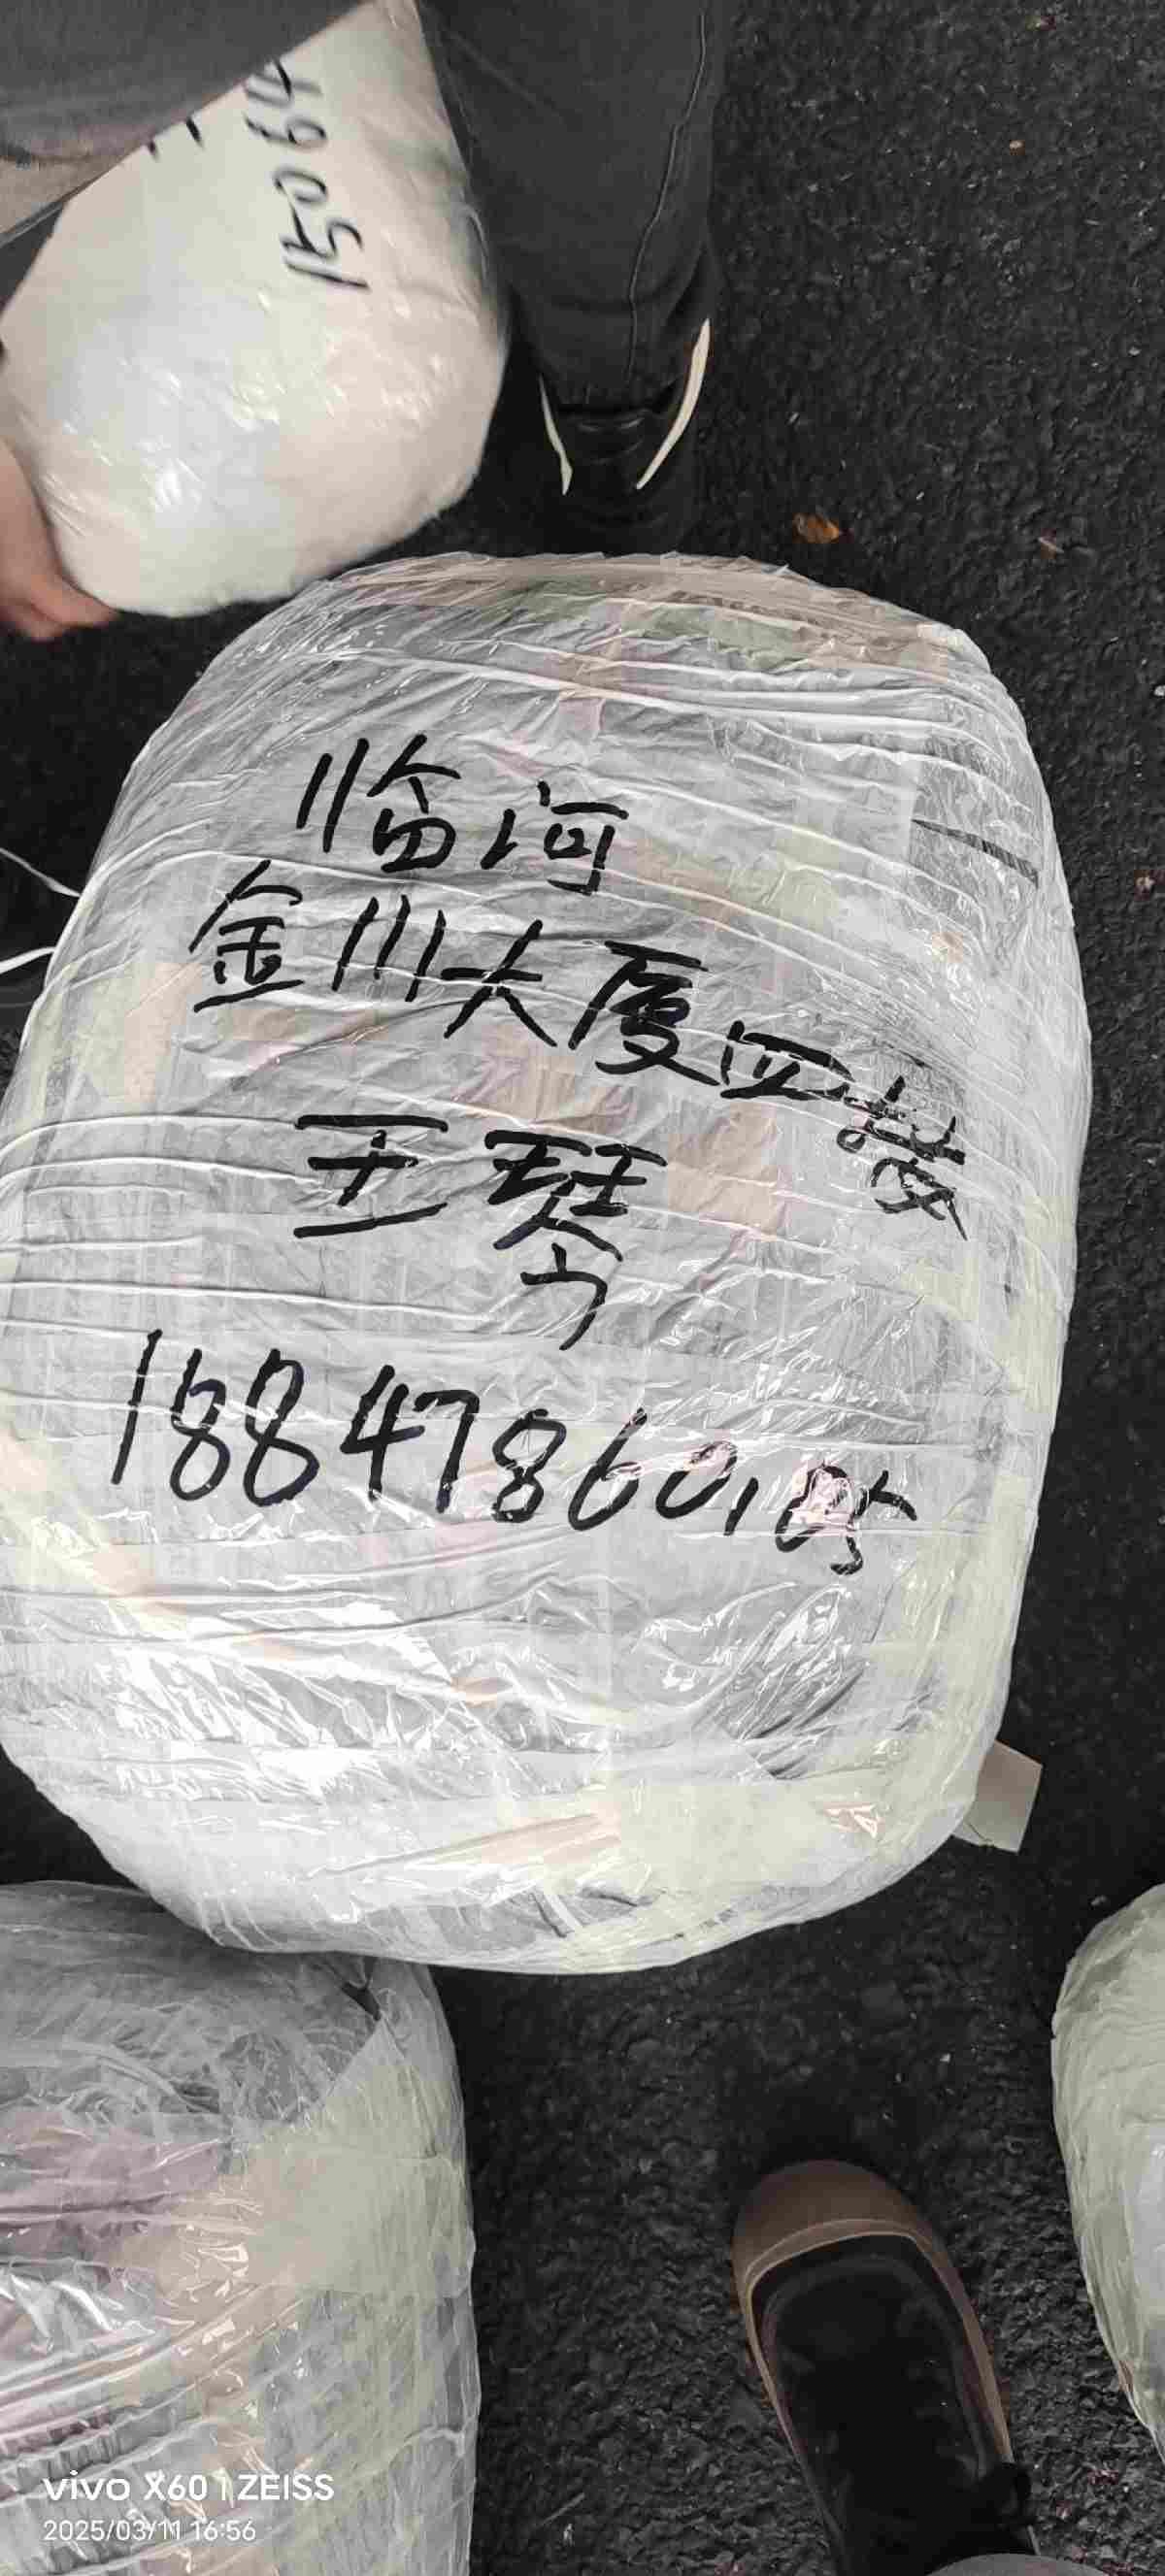 15069
临河
金川大厦四楼
王琴
188478601
vivo X60 | ZEISS
2025/03/11 16:56